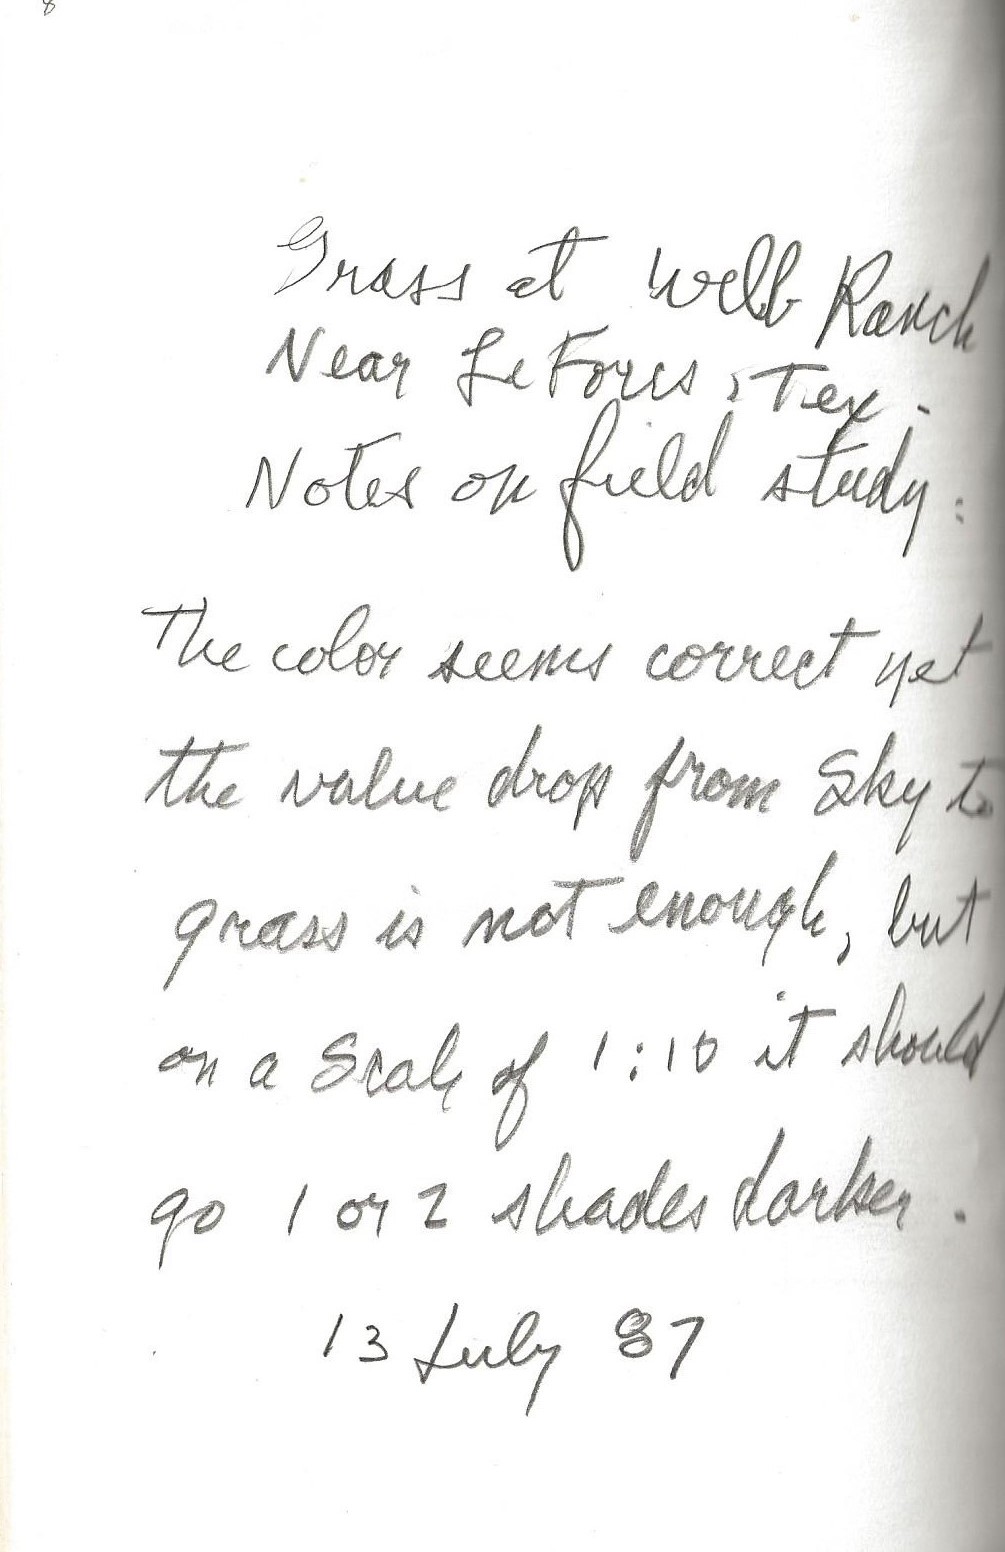 8
Grass at Webb Ranch
Near LeFors, Tex.
Notes on field study:
The color seems correct yet
the value drop from Sky to
grass is not enough, but
on a Scale of 1:10 it should
go 1 or 2 shades darker.
13 July 87